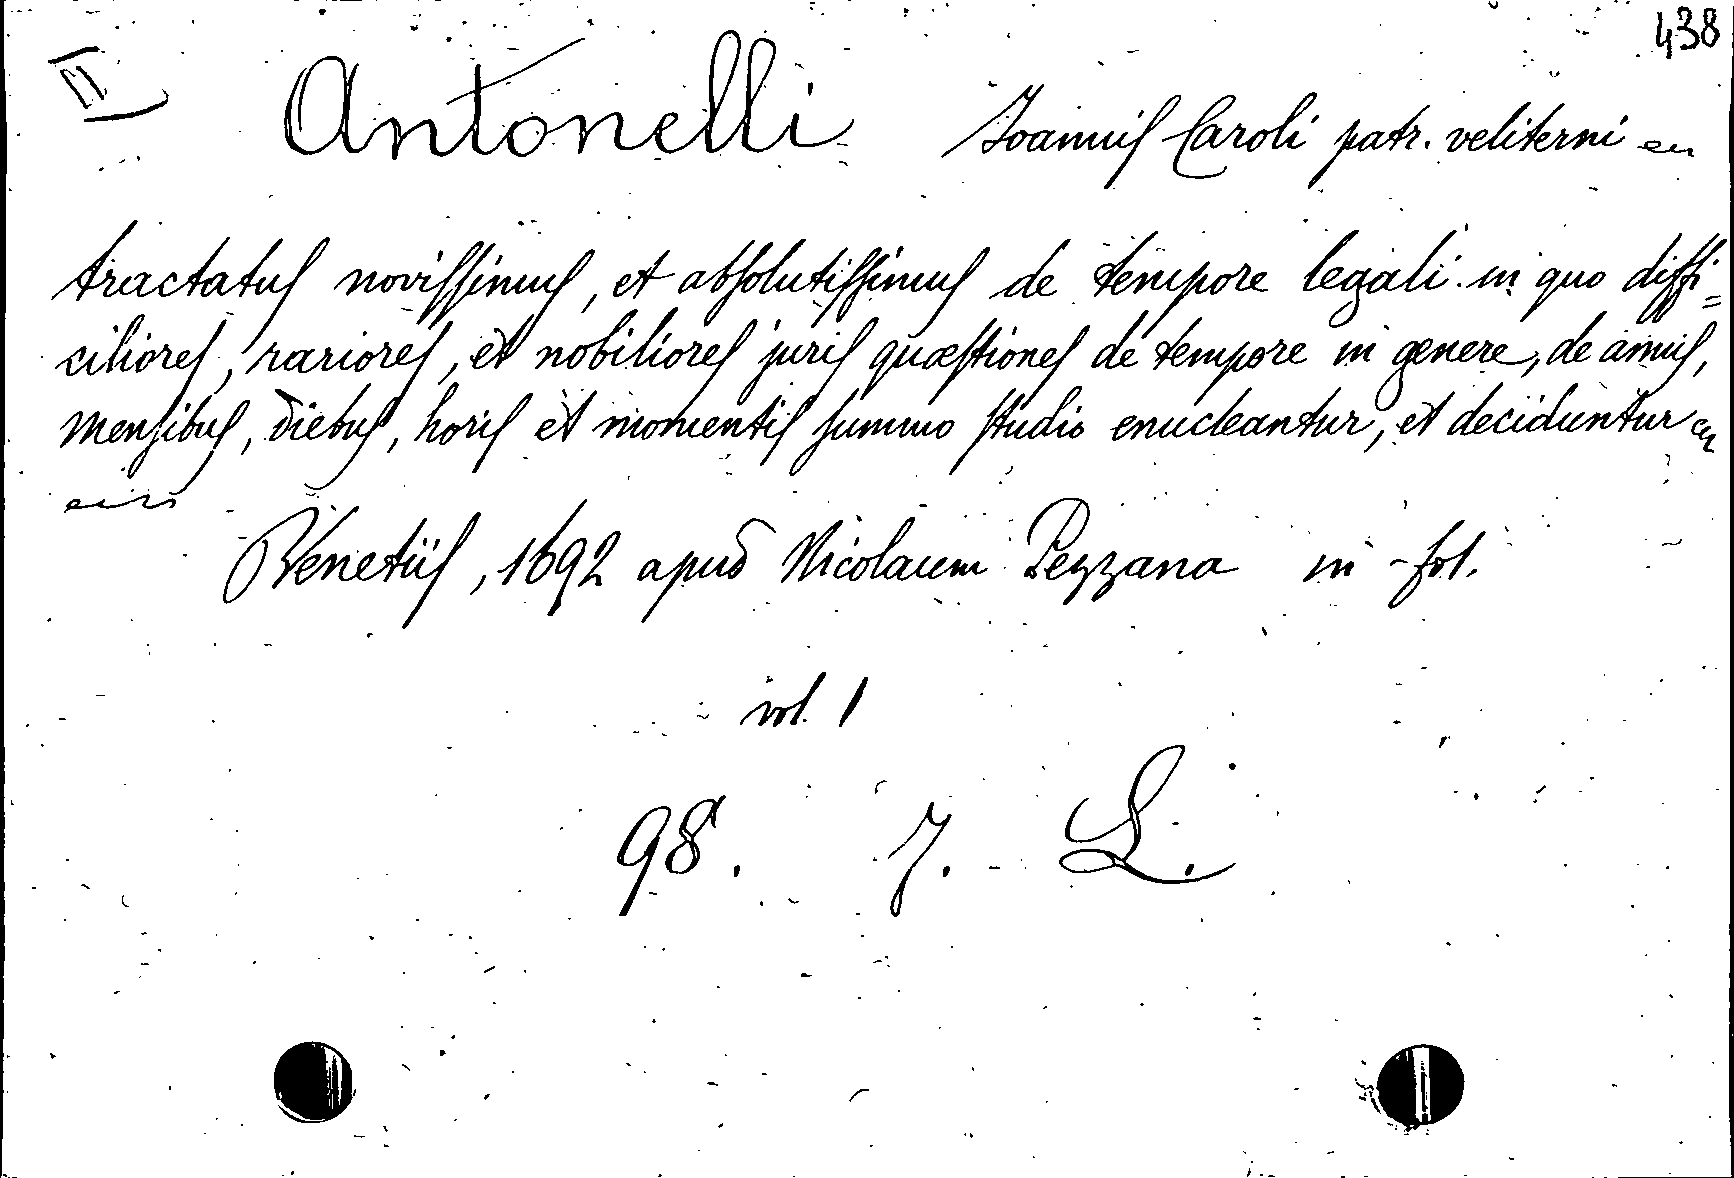 438
II Antonelli Joannis Caroli patr. veliterni
tractatus novissimus, et absolutissimus de tempore legali in quo diffi=
ciliores, rariores, et nobiliores juris quæstiones de tempore in genere, de annis,
mensibus, diebus, horis et momentis summo studio enucleantur, et deciduntur
Venetiis, 1692 apud Nicolaum Pezzana in-fol.
vol. 1
98. 7. L.